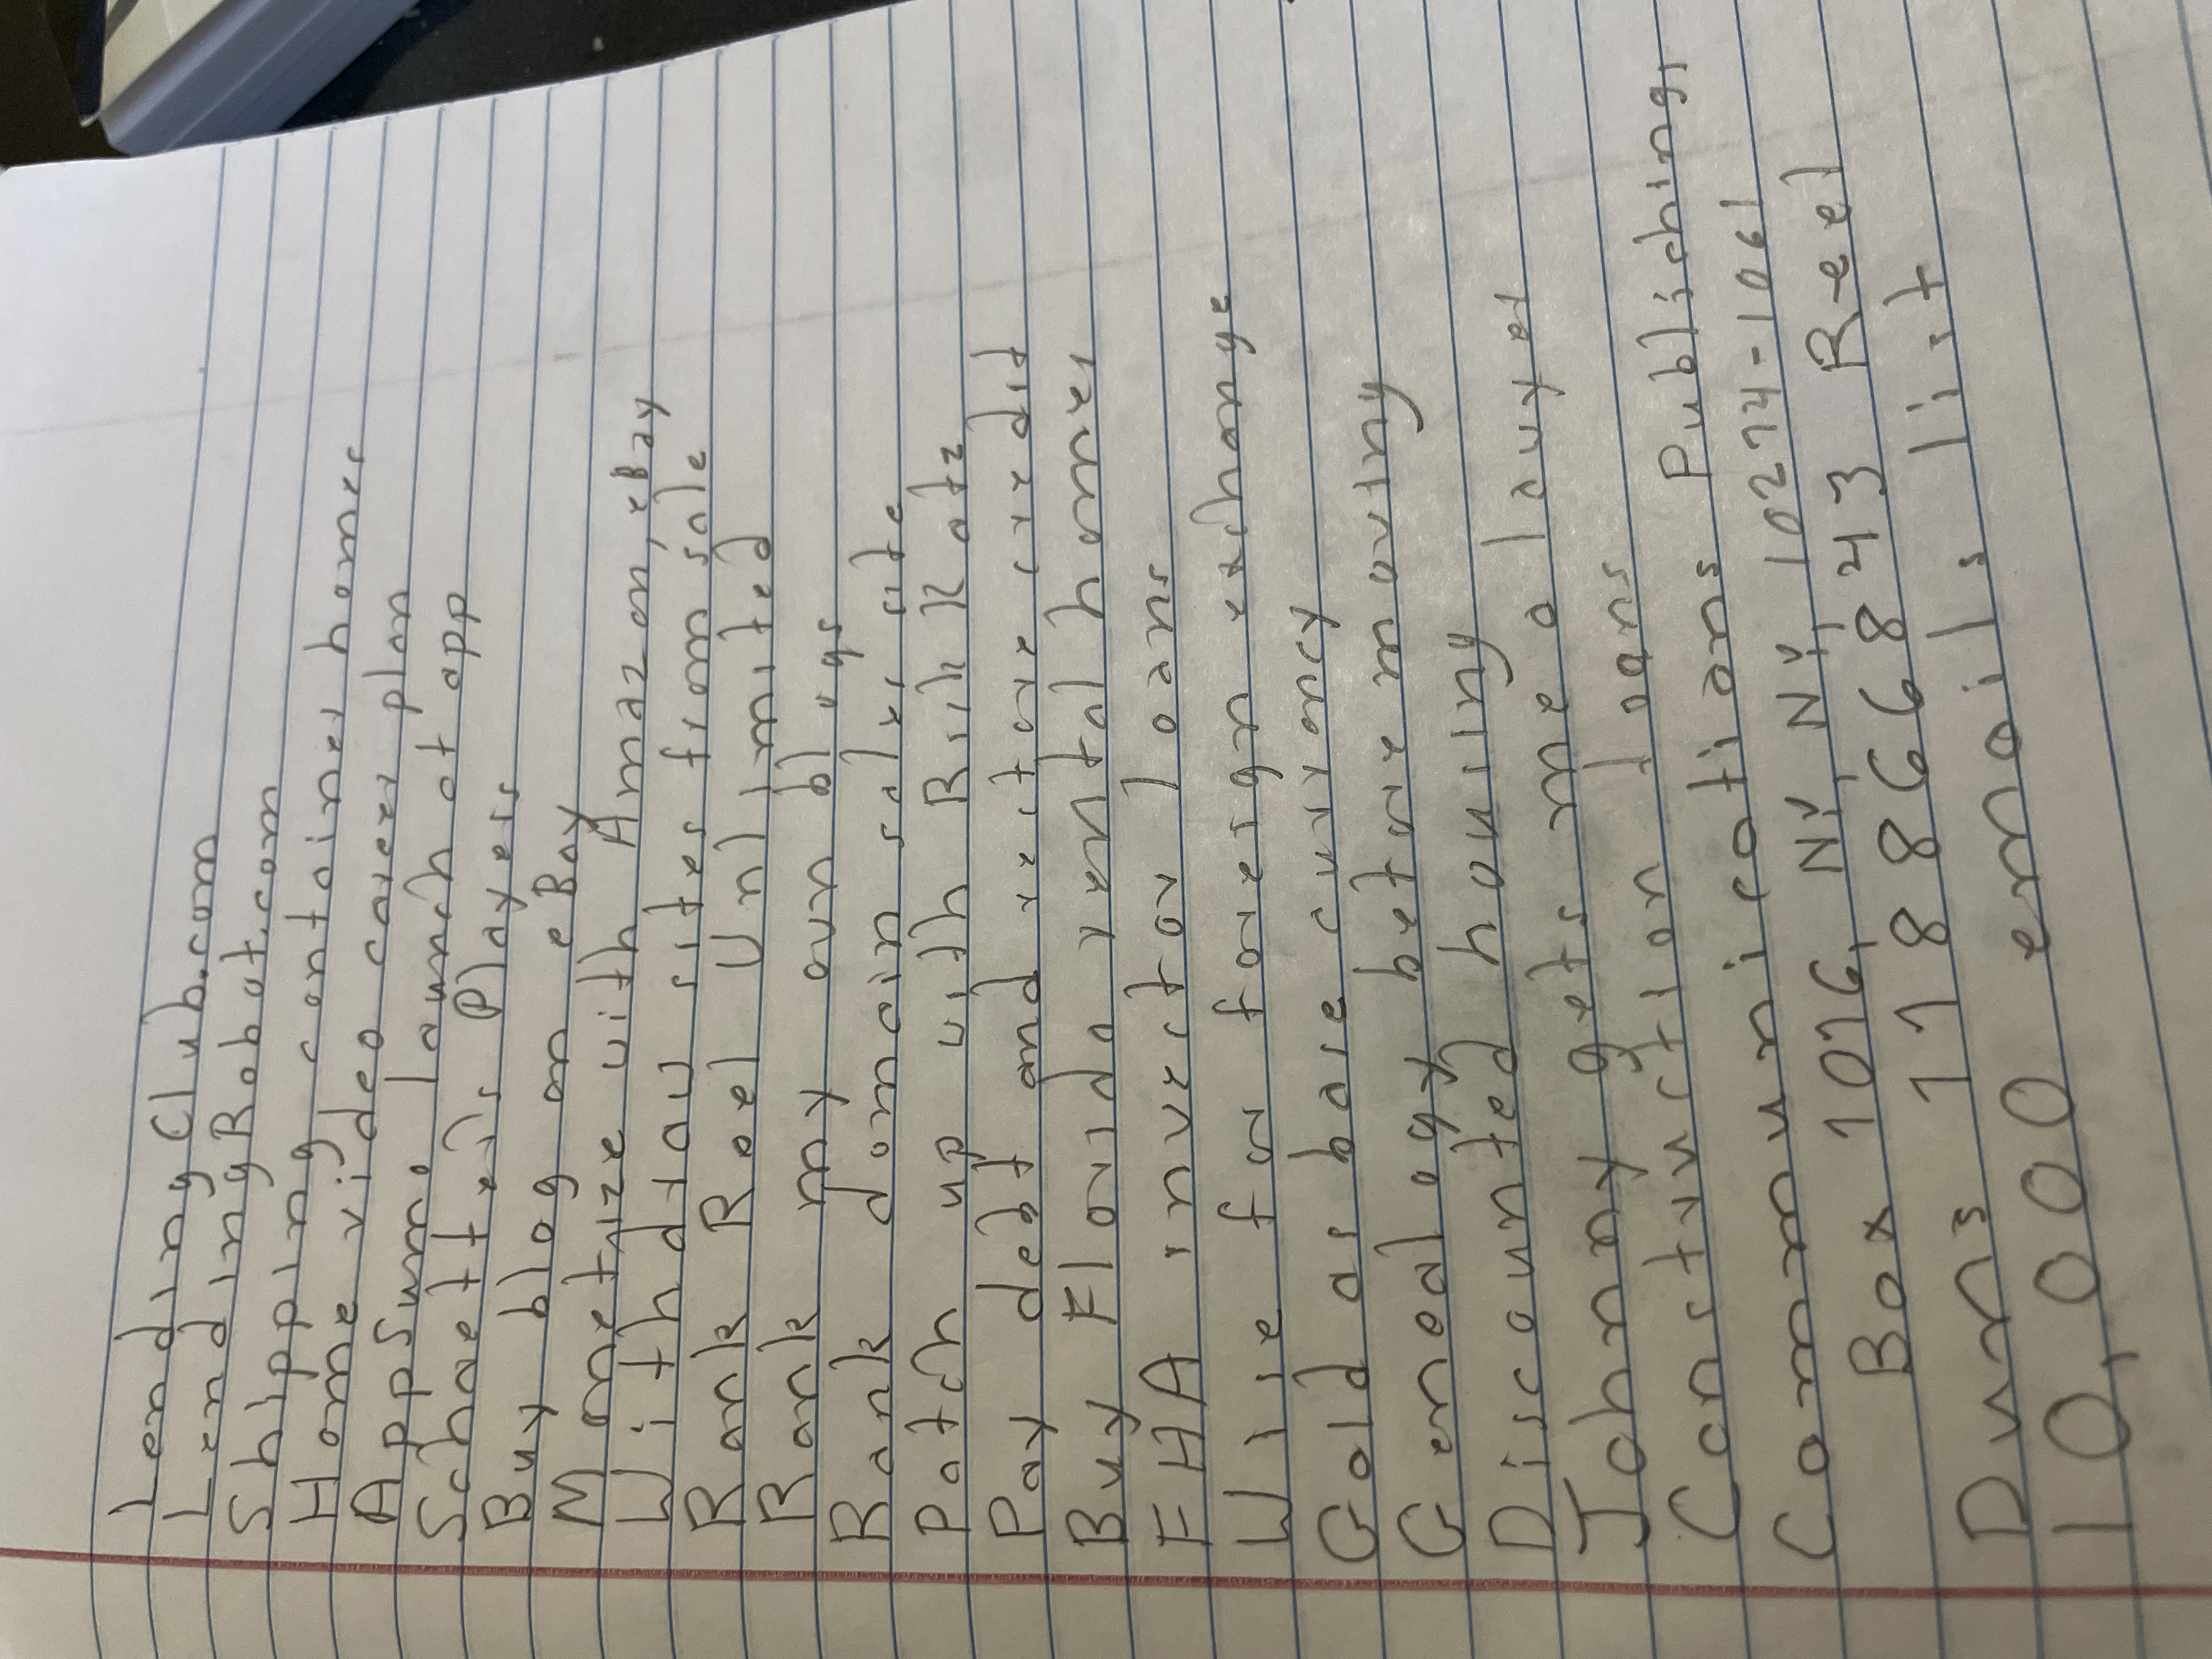 LendingClub.com
LendingRobot.com
Shipping container homes
Home video career plan
AppSumo launch of app
Schaeffer's Players
Buy blog on eBay
Monetize with Amazon, eBay
Withdraw sites from sale
Rank Reel Unlimited
Rank my own blogs
Rank domain sales site
Patch up with Bill Katz
Pay debt and restore credit
Buy Florida rental homes
FHA investor loans
Wire for foreign exchange
Gold as base currency
Genealogy before moving
Discounted housing
Johnny gets me a lawyer
Construction loans
Communications Publishing,
Box 1076, NY, NY, 10274-1061
Duns 118868843 Reel
10,000 emails list